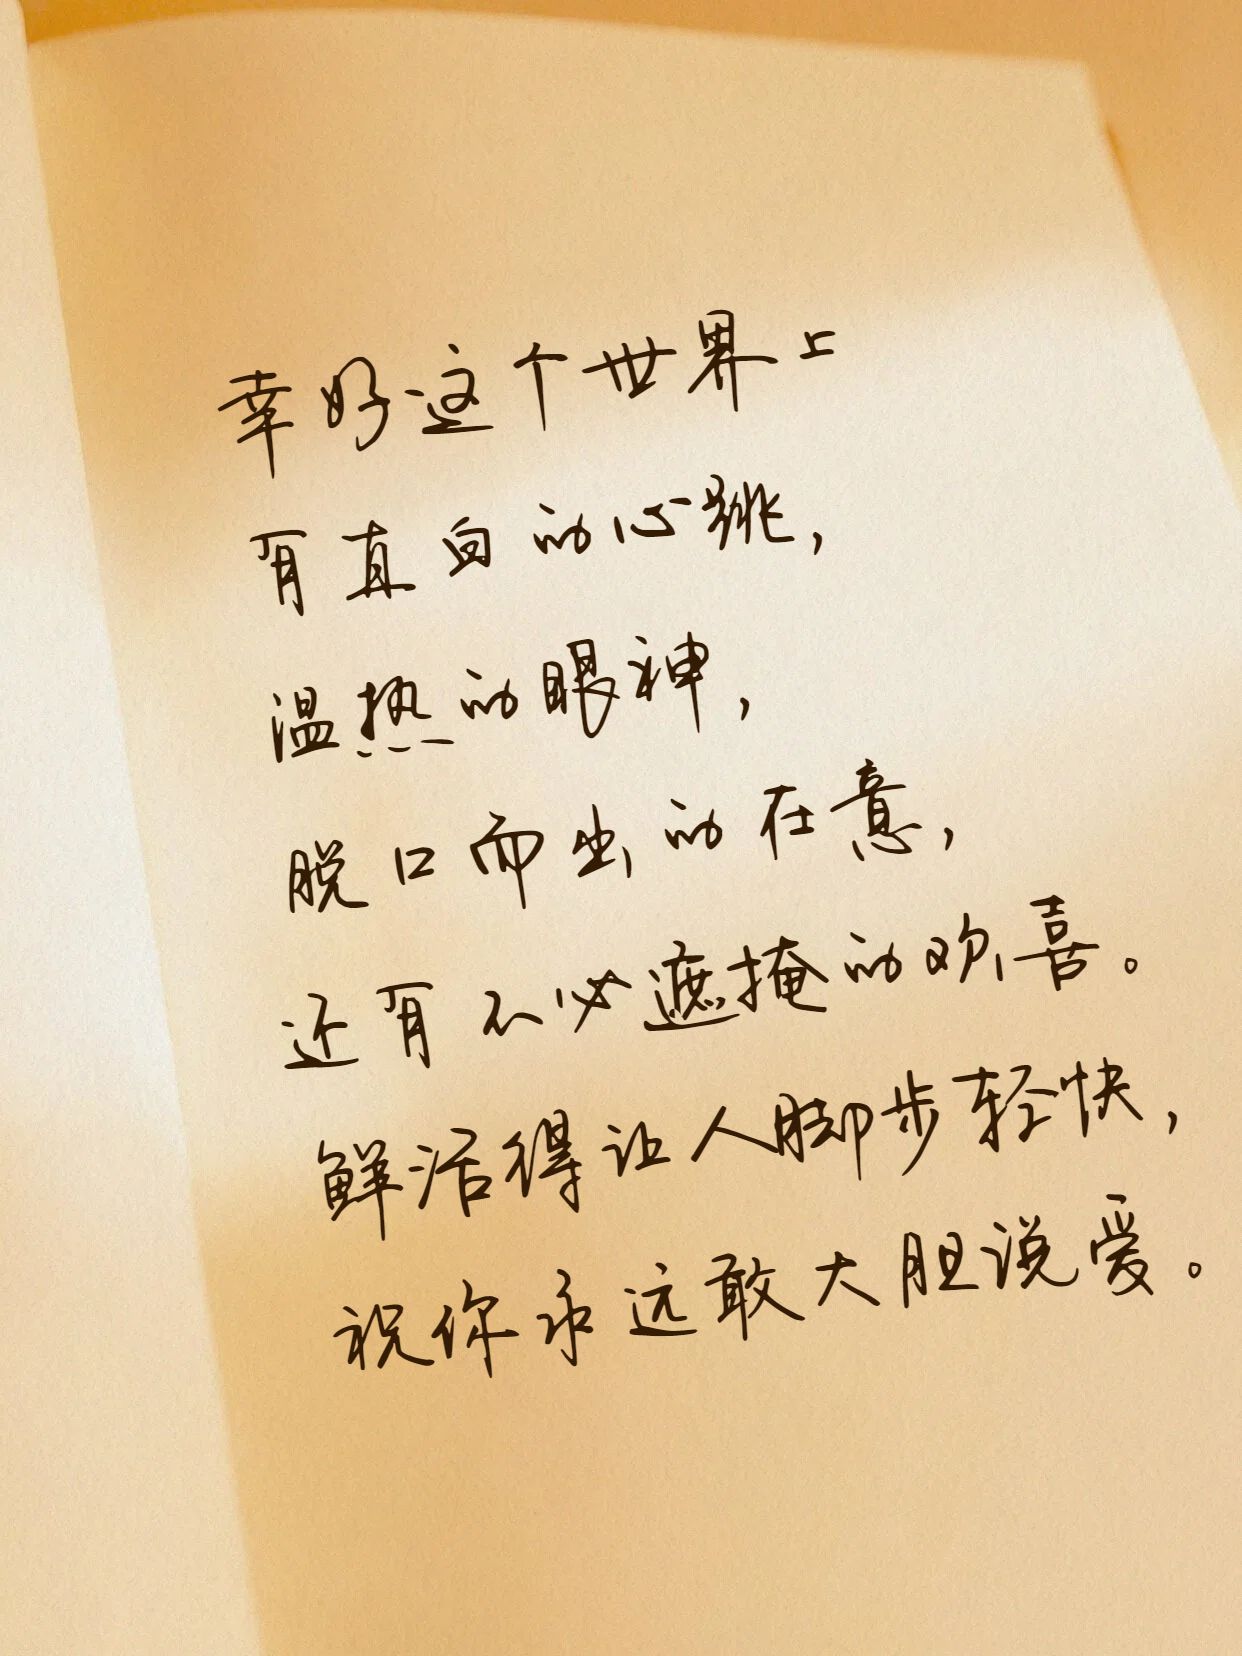 幸好这个世界上
有直白的心跳，
温热的眼神，
脱口而出的在意，
还有不必遮掩的欢喜。
鲜活得让人脚步轻快，
祝你永远敢大胆说爱。